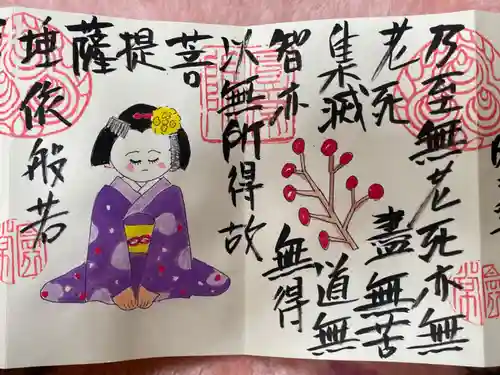 乃至無老死亦無
老死盡無苦
集滅道無
智亦無得
以無所得故
菩提薩埵
依般若